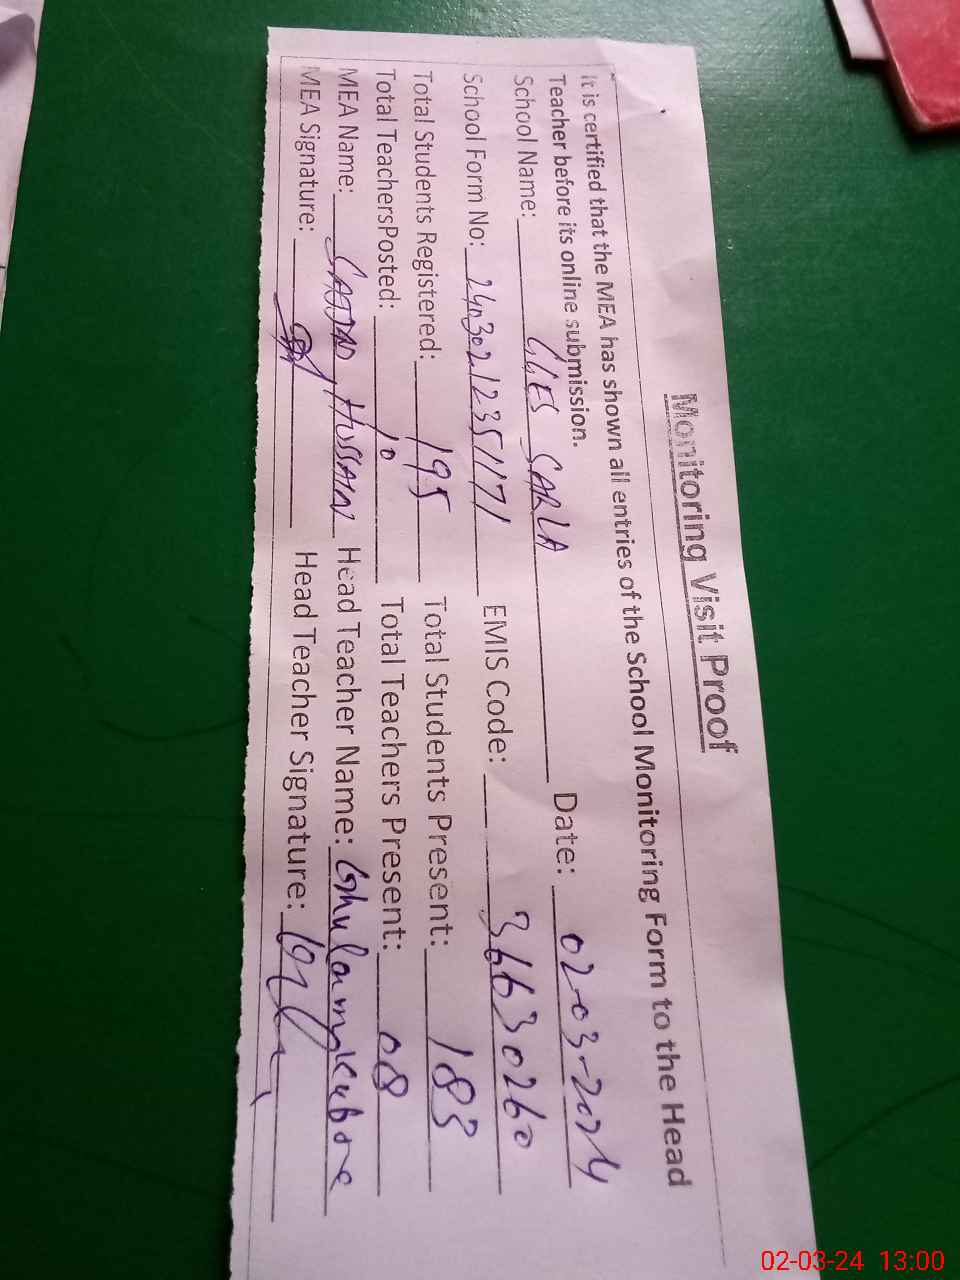 Monitoring Visit Proof
It is certified that the MEA has shown all entries of the School Monitoring Form to the Head
Teacher before its online submission.
School Name: GGES SARLA Date: 02-03-2024
School Form No: 2403021235171 EMIS Code: 36630260
Total Students Registered: 195 Total Students Present: 183
Total TeachersPosted: 10 Total Teachers Present: 08
MEA Name: SAJJAD HUSSAIN Head Teacher Name:
MEA Signature: Head Teacher Signature:
02-03-24 13:00